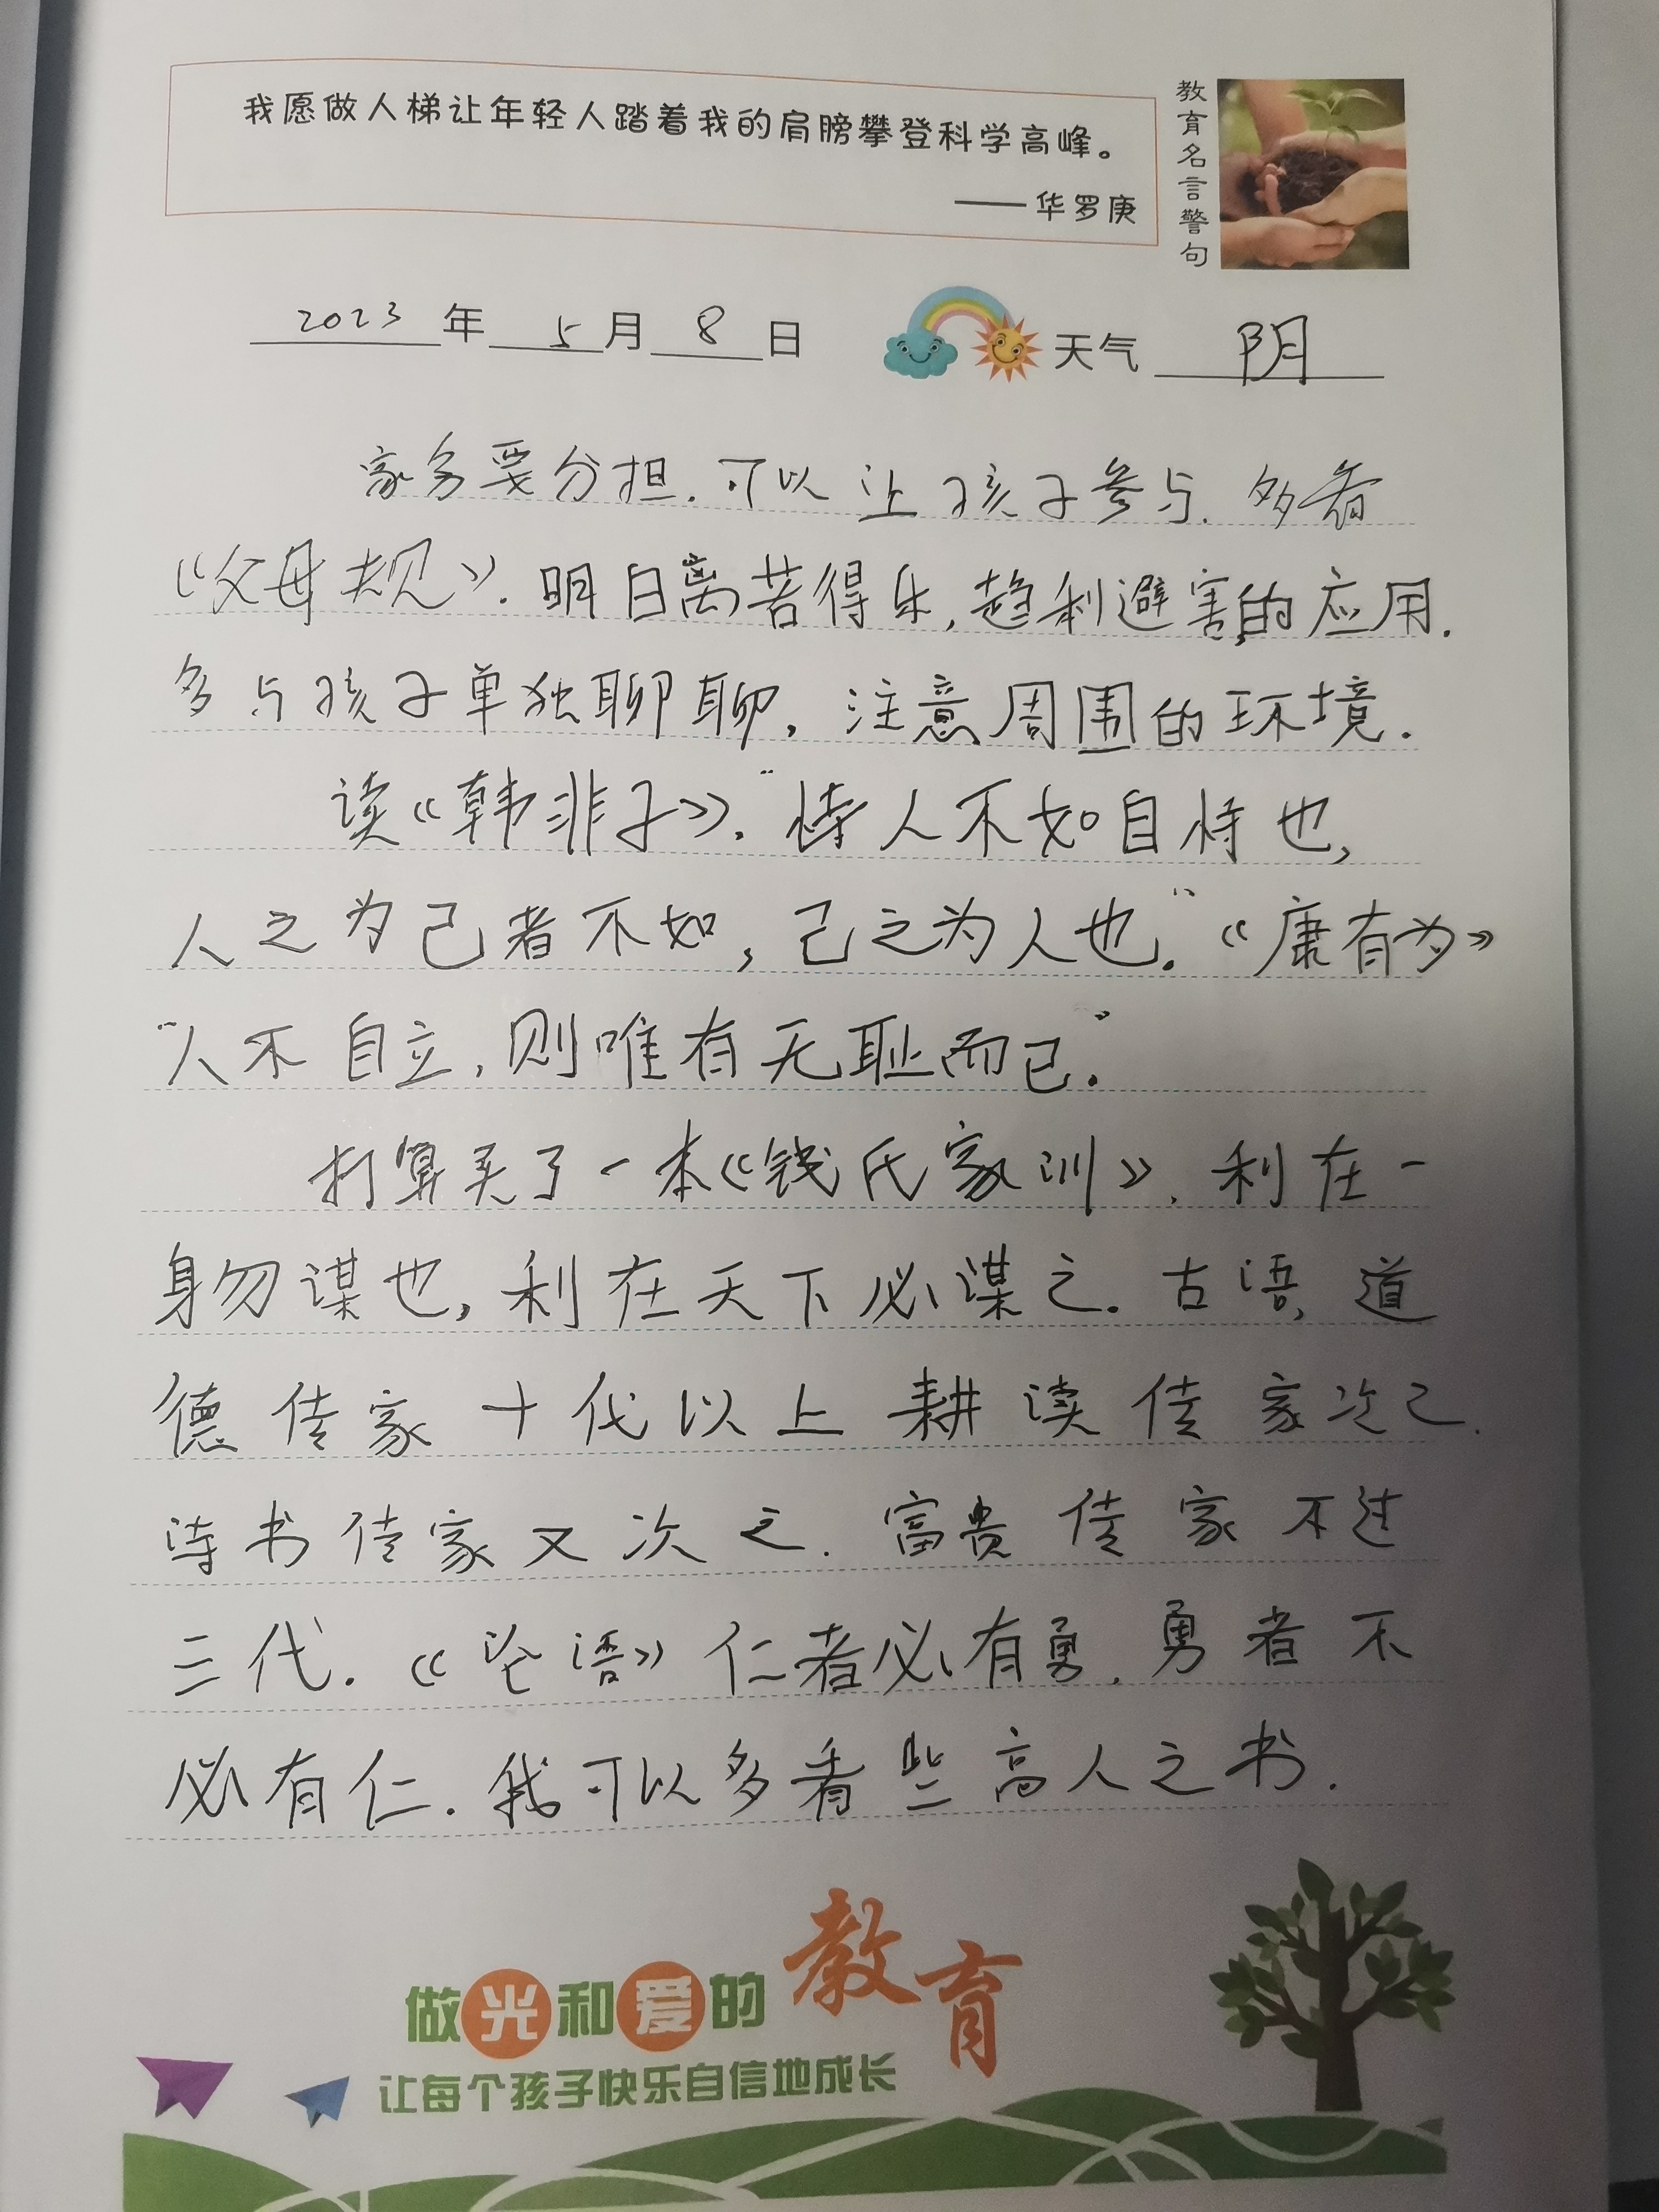 我愿做人梯让年轻人踏着我的肩膀攀登科学高峰。
——华罗庚
教育名言警句
2023年5月8日 天气 阴
家务要分担.可以让孩子参与.多看
《父母规》.明白离苦得乐,趋利避害的应用.
多与孩子单独聊聊,注意周围的环境.
读《韩非子》."恃人不如自恃也,
人之为己者不如,己之为人也."《康有为》
"人不自立,则唯有无耻而已."
打算买了一本《钱氏家训》.利在一
身勿谋也,利在天下必谋之.古语,道
德传家十代以上 耕读传家次之.
诗书传家又次之.富贵传家不过
三代.《论语》仁者必有勇.勇者不
必有仁.我可以多看些高人之书.
做光和爱的教育
让每个孩子快乐自信地成长